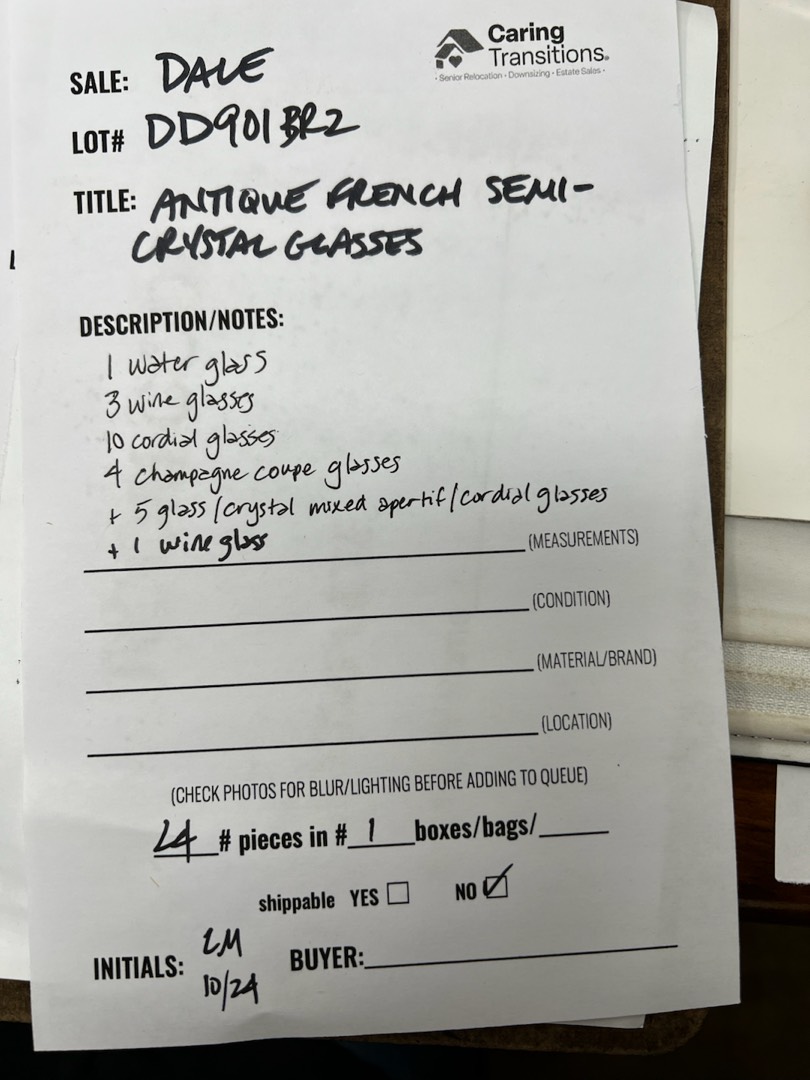 Caring
Transitions.
• Senior Relocation • Downsizing • Estate Sales •
SALE: DALE
LOT# DD901BR2
TITLE: ANTIQUE FRENCH SEMI-
CRYSTAL GLASSES
DESCRIPTION/NOTES:
1 water glass
3 wine glasses
10 cordial glasses
4 champagne coupe glasses
+ 5 glass/crystal mixed apertif/cordial glasses
+ 1 wine glass
(MEASUREMENTS)
(CONDITION)
(MATERIAL/BRAND)
(LOCATION)
(CHECK PHOTOS FOR BLUR/LIGHTING BEFORE ADDING TO QUEUE)
24 # pieces in # 1 boxes/bags/
shippable YES NO
INITIALS: LM BUYER:
10/24